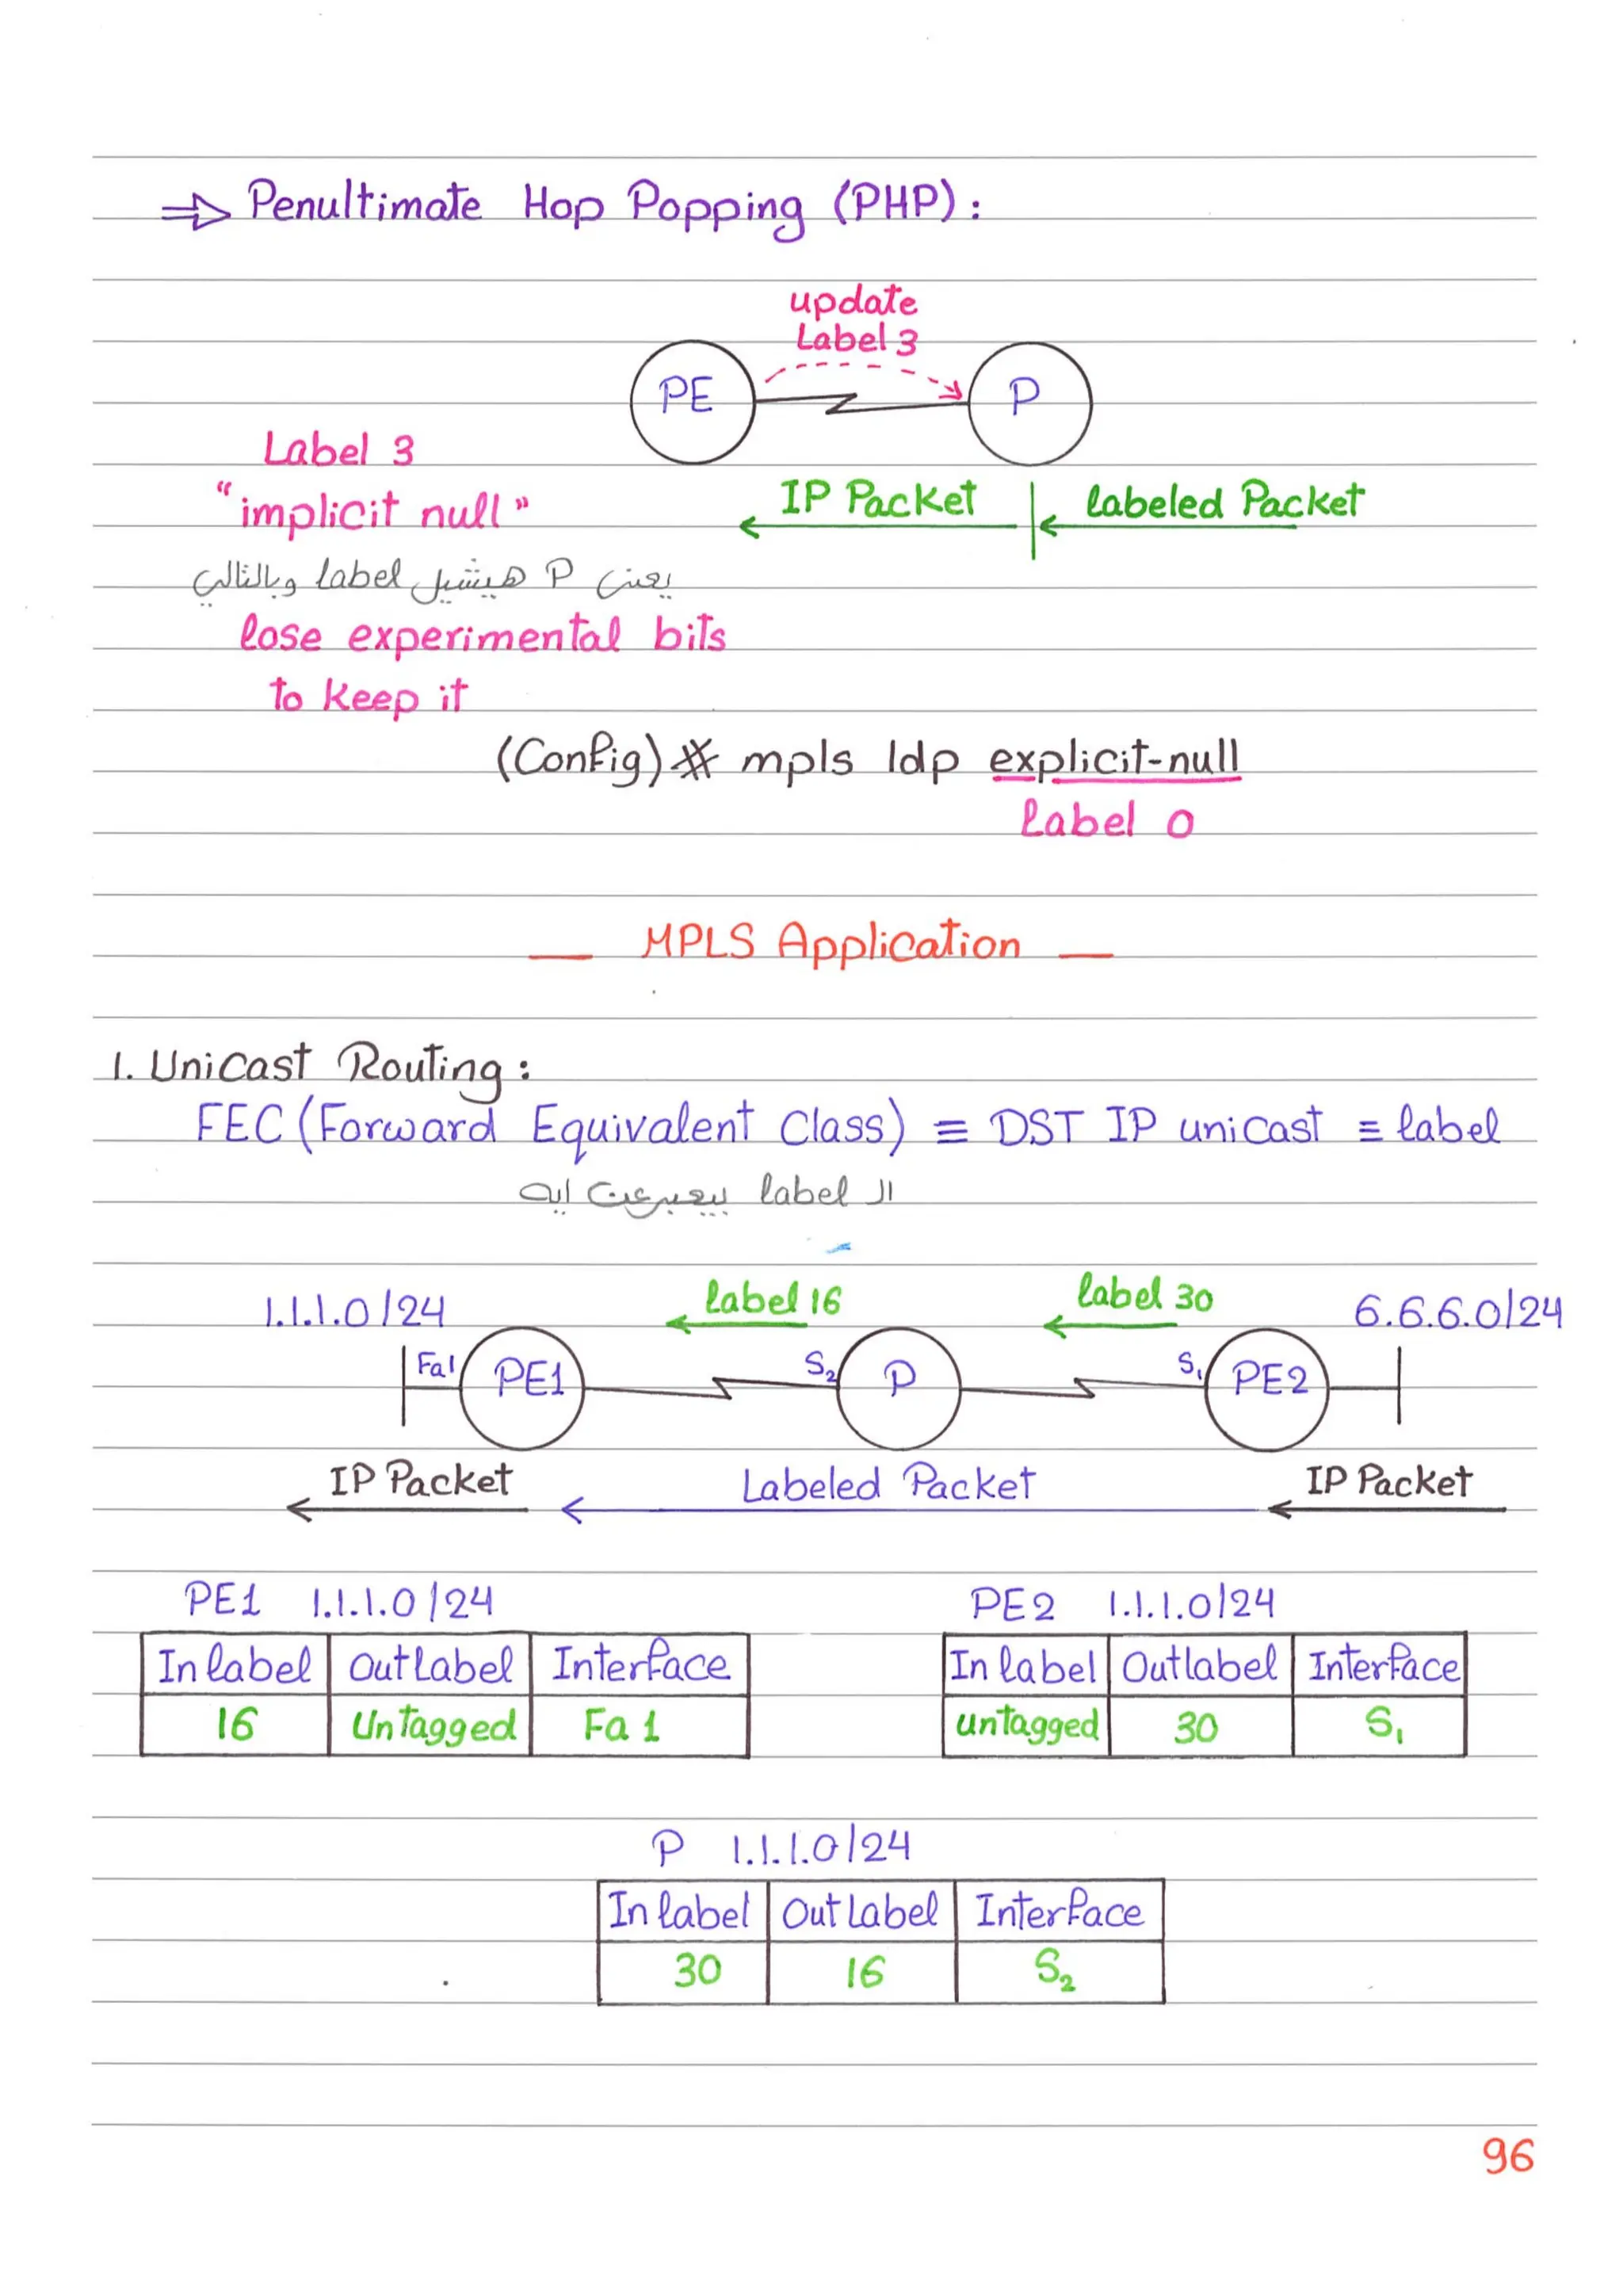 ⇒ Penultimate Hop Popping (PHP):
update
Label 3
PE
P
Label 3
IP Packet
labeled Packet
"implicit null"
يعني P هيشيل label وبالتالي
lose experimental bits
to keep it
(Config)# mpls ldp explicit-null
label 0
MPLS Application
1. Unicast Routing:
FEC (Forward Equivalent Class) ≡ DST IP unicast ≡ label
الـ label بيعبر عن ايه
label 16
label 30
1.1.1.0/24
6.6.6.0/24
Fa1 PE1 S2 P S1 PE2
IP Packet
Labeled Packet
IP Packet
PE1 1.1.1.0/24
In label Out label Interface
16 Untagged Fa 1
PE2 1.1.1.0/24
In label Out label Interface
untagged 30 S1
P 1.1.1.0/24
In label Out Label Interface
30 16 S2
96